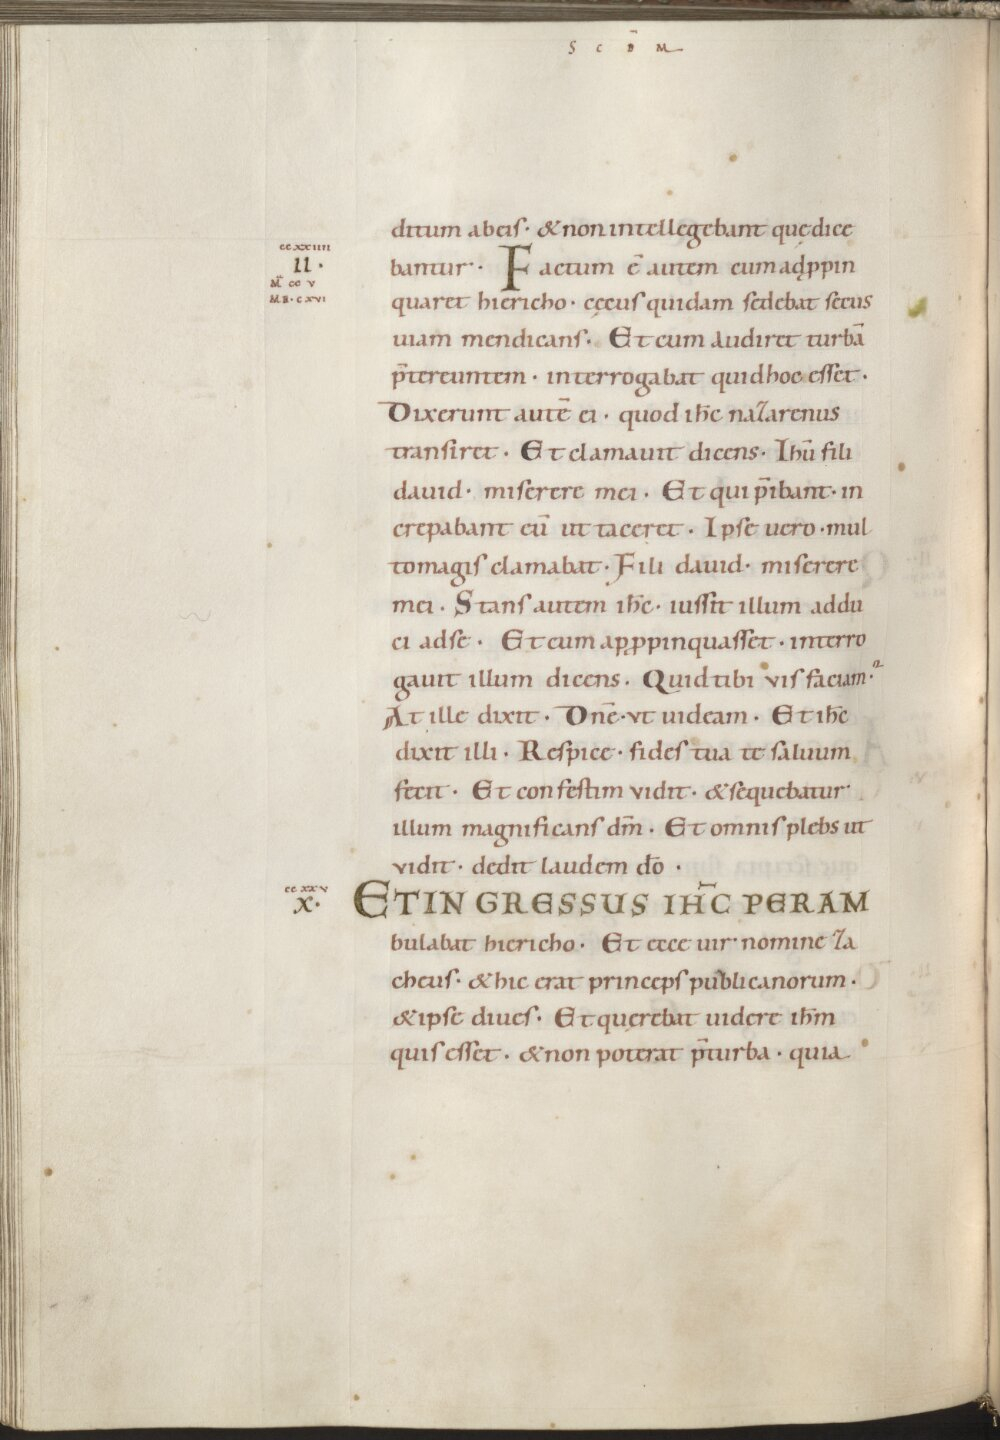 S C D̄ M
ditum abeis· &non intellegebant quędice
ccxxiiii
II·
M̄ cc v
MR· cxvi
bantur· Factum ē autem cum adp̱ppin
quaret hiericho· cęcus quidam sedebat secus
uiam mendicans· Et cum Audiret turbā
p̄tereuntem· interrogabat quid hoc esset·
Dixerunt autē ei· quod ih̄c nazarenus
transiret· Et clamauit dicens· Ihū fili
dauid· miserere mei· Et qui p̄ibant· in
crepabant eū ut taceret· Ipse uero· mul
tomagis clamabat· Fili dauid· miserere
mei· Stans autem ih̄c· iussit illum addu
ci adse· Et cum apꝓpinquasset· interro
gauit illum dicens· Quid tibi vis faciam·
At ille dixit· Dn̄e· vt uideam· Et ih̄c
dixit illi· Respice· fides tua te saluum
fecit· Et confestim vidit· &sequebatur
illum magnificans dm̄· Et omnis plebs ut
vidit· dedit laudem dō·
ccxxv
X·
ET INGRESSUS IH̄C PERAM
bulabat hiericho· Et ecce uir nomine za
cheus· &hic erat princeps publicanorum·
&ipse diues· Et quęrebat uidere ih̄m
quis esset· &non poterat p̄turba· quia